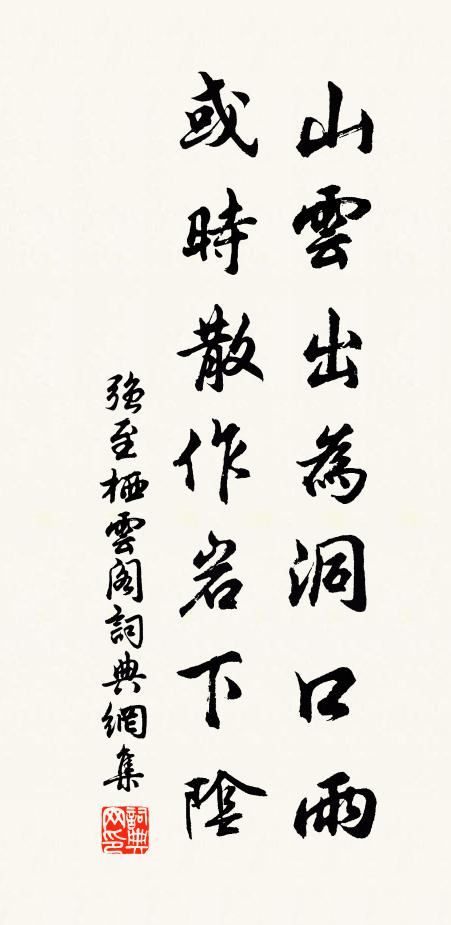 山雲出為洞口雨
或時散作岩下陰
強至栖雲閣詞典網集
詞典網印